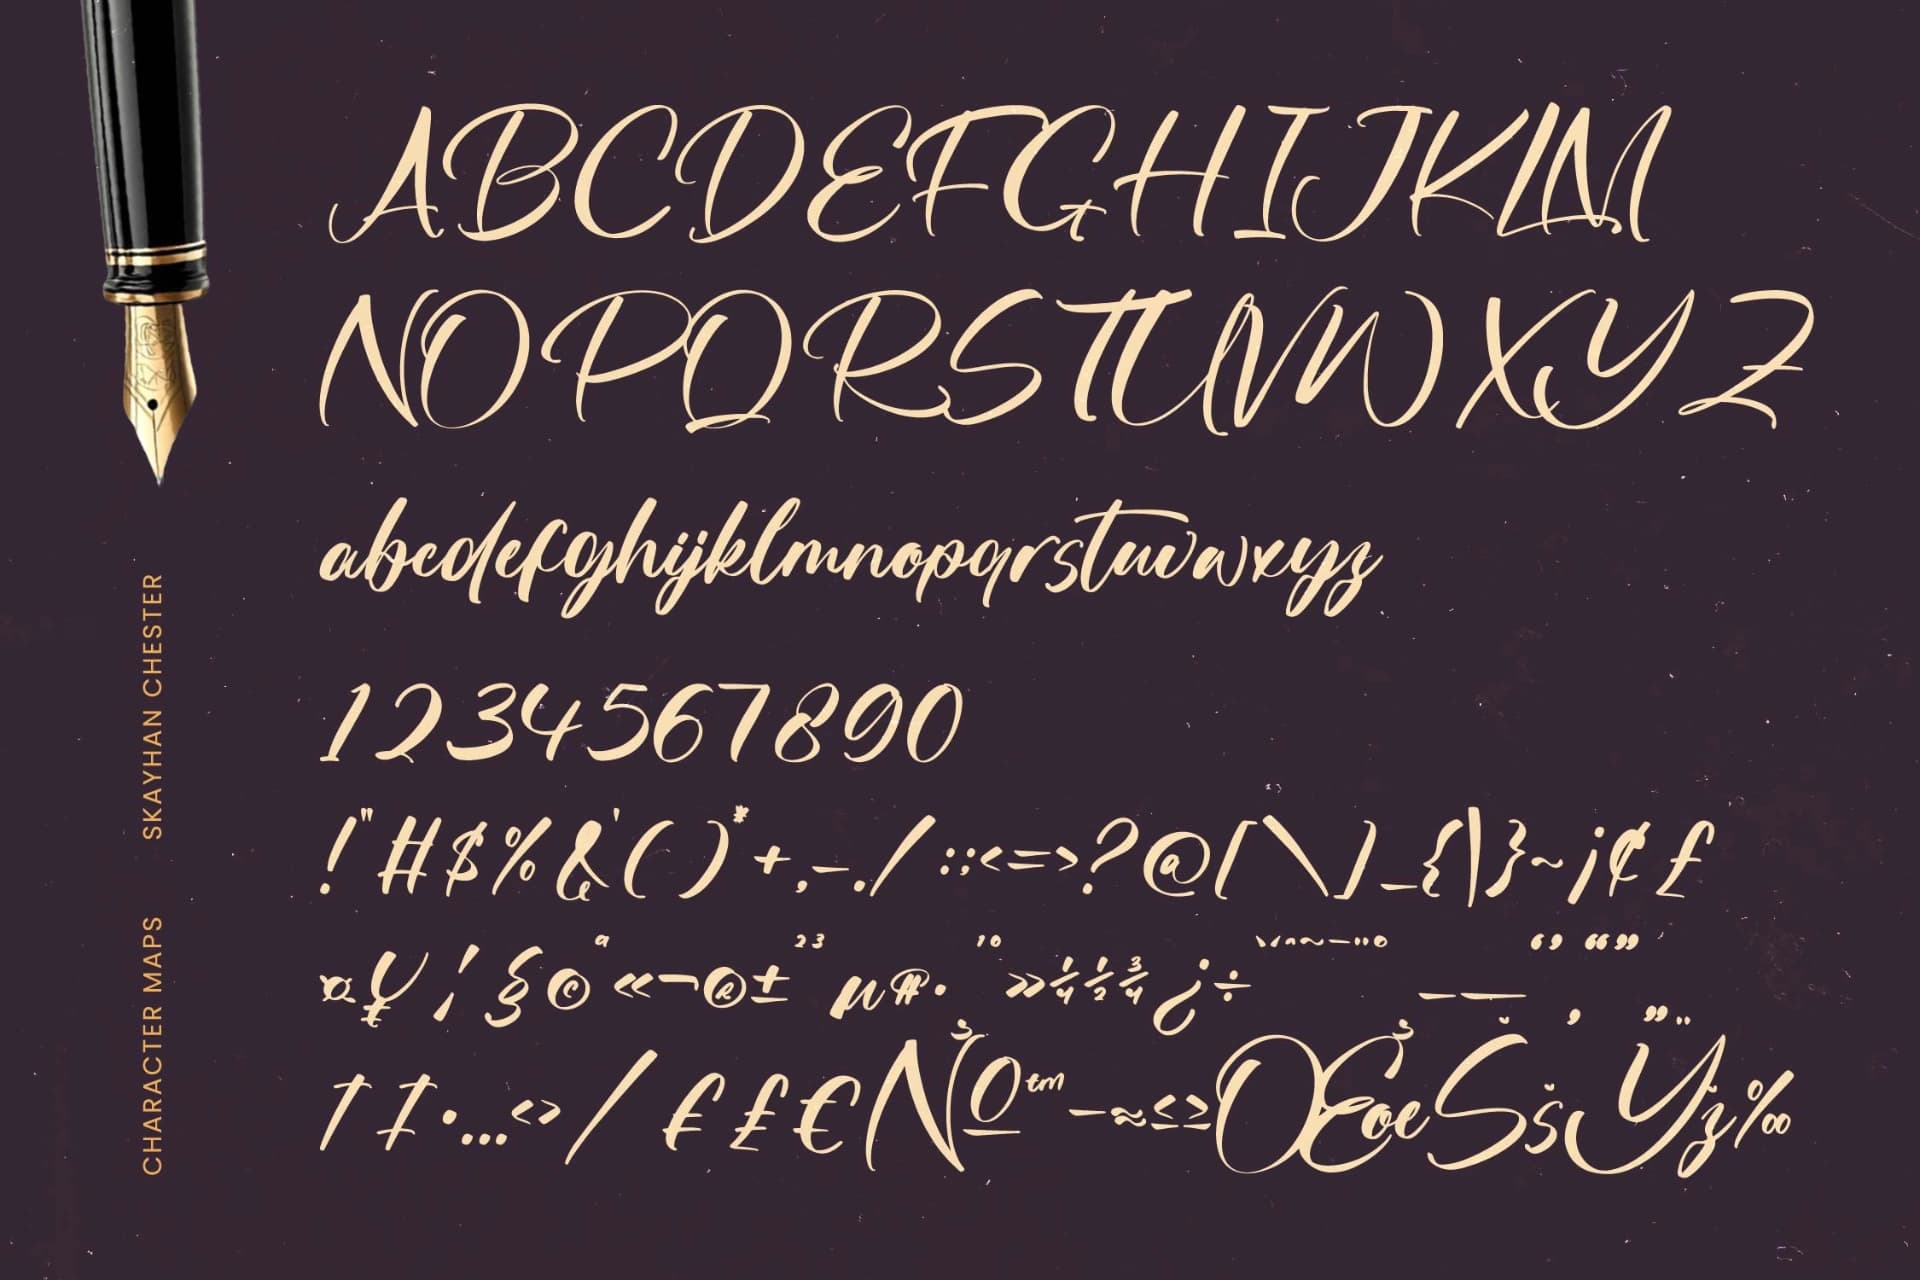 ABCDEFGHIJKLM
NOPQRSTUVWXYZ
abcdefghijklmnopqrstuvwxyz
1234567890
!"#$%&'()*+,-./:;<=>?@[\]_{|}~¡¢£
¤¥¦§©ª«¬®±²³µ¶·¹º»¼½¾¿÷
†‡•…‹›⁄₣₤€№™−≈≤≥ŒœŠšŸž‰
SKAYHAN CHESTER
CHARACTER MAPS